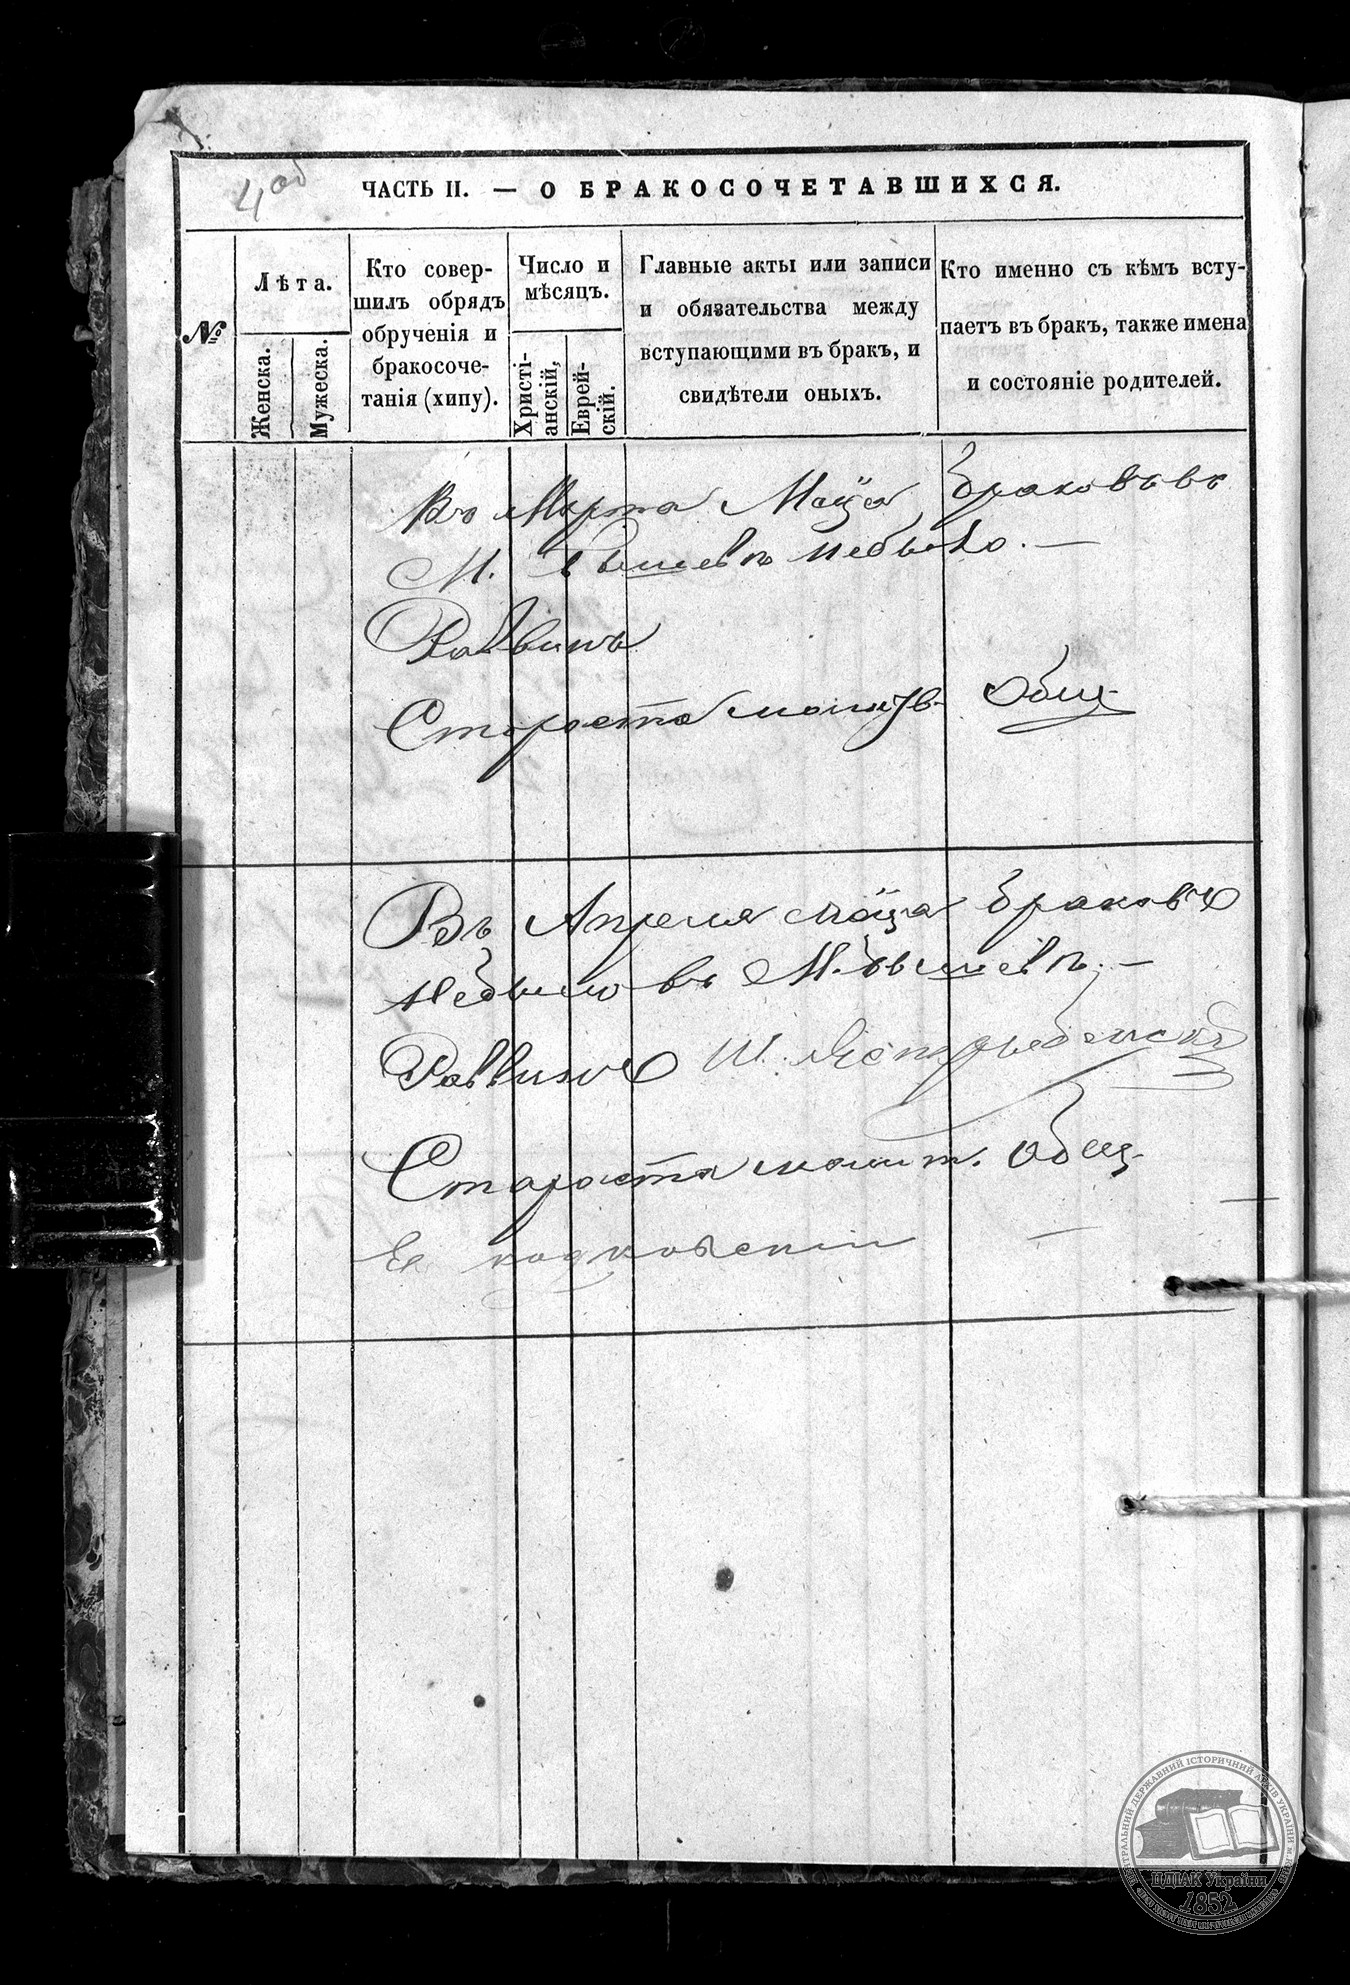 4 об
ЧАСТЬ II. — О БРАКОСОЧЕТАВШИХСЯ.
№
Лѣта.
Женска.
Мужеска.
Кто совер-
шилъ обрядъ
обрученія и
бракосоче-
танія (хипу).
Число и
мѣсяцъ.
Христі-
анскій,
Еврей-
скій.
Главные акты или записи
и обязательства между
вступающими въ бракъ, и
свидѣтели оныхъ.
Кто именно съ кѣмъ всту-
паетъ въ бракъ, также имена
и состояніе родителей.
Въ Марта Мца браковъ въ
М. небыло. —
Раввинъ
Староста молитв. Общ.
Въ Апреля мца браковъ
небыло въ М. —
Раввинъ Ш.
Староста молит. Общ.
ЦЕНТРАЛЬНИЙ ДЕРЖАВНИЙ ІСТОРИЧНИЙ АРХІВ УКРАЇНИ М. КИЇВ
ЦДІАК України
1852